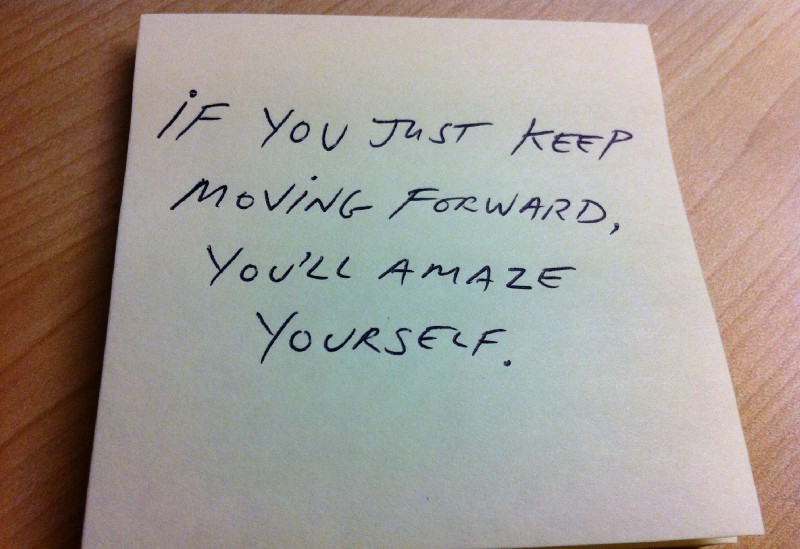 iF YOU JUST KEEP
MOViNG FORWARD,
YOU'LL AMAZE
YOURSELF.